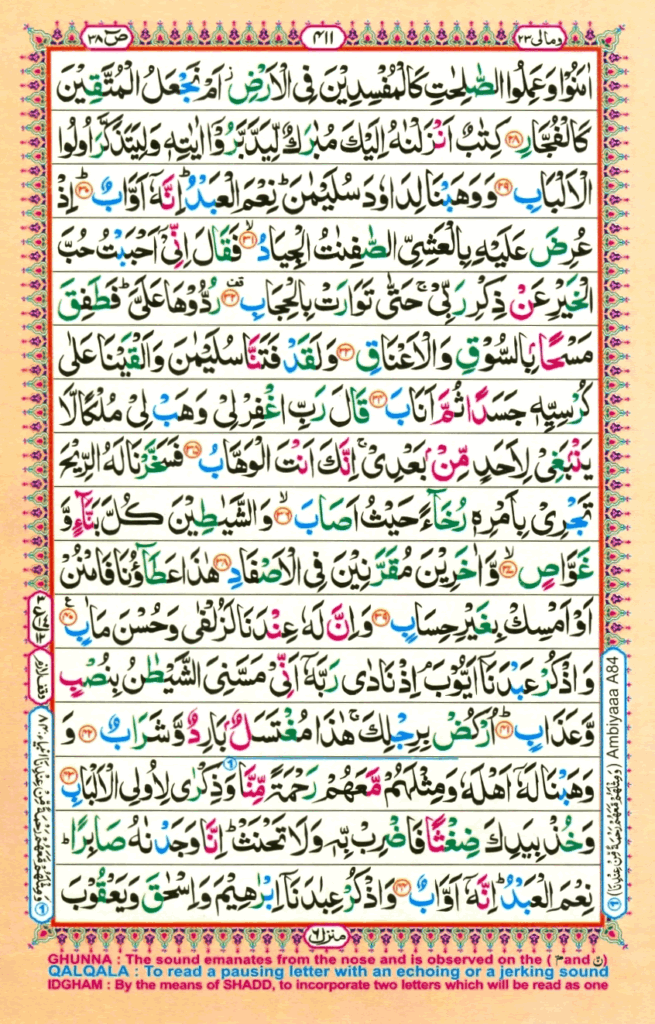 ص ٣٨
٤١١
ومالی ٢٣
اٰمَنُوْا وَعَمِلُوا الصّٰلِحٰتِ كَالْمُفْسِدِيْنَ فِى الْاَرْضِ ؗ اَمْ نَجْعَلُ الْمُتَّقِيْنَ
كَالْفُجَّارِ ﴿٢٨﴾ كِتٰبٌ اَنْزَلْنٰهُ اِلَيْكَ مُبٰرَكٌ لِّيَدَّبَّرُوْۤا اٰيٰتِهٖ وَلِيَتَذَكَّرَ اُولُوا
الْاَلْبَابِ ﴿٢٩﴾ وَوَهَبْنَا لِدَاوٗدَ سُلَيْمٰنَ ؕ نِعْمَ الْعَبْدُ ؕ اِنَّهٗۤ اَوَّابٌ ﴿٣٠﴾ اِذْ
عُرِضَ عَلَيْهِ بِالْعَشِىِّ الصّٰفِنٰتُ الْجِيَادُ ﴿٣١﴾ۙ فَقَالَ اِنِّىْۤ اَحْبَبْتُ حُبَّ
الْخَيْرِ عَنْ ذِكْرِ رَبِّىْ ۚ حَتّٰى تَوَارَتْ بِالْحِجَابِ ﴿٣٢﴾ رُدُّوْهَا عَلَىَّ ؕ فَطَفِقَ
مَسْحًۢا بِالسُّوْقِ وَالْاَعْنَاقِ ﴿٣٣﴾ وَلَقَدْ فَتَنَّا سُلَيْمٰنَ وَاَلْقَيْنَا عَلٰى
كُرْسِيِّهٖ جَسَدًا ثُمَّ اَنَابَ ﴿٣٤﴾ قَالَ رَبِّ اغْفِرْ لِىْ وَهَبْ لِىْ مُلْكًا لَّا
يَنْۢبَغِىْ لِاَحَدٍ مِّنْۢ بَعْدِىْ ۚ اِنَّكَ اَنْتَ الْوَهَّابُ ﴿٣٥﴾ فَسَخَّرْنَا لَهُ الرِّيْحَ
تَجْرِىْ بِاَمْرِهٖ رُخَآءً حَيْثُ اَصَابَ ﴿٣٦﴾ۙ وَالشَّيٰطِيْنَ كُلَّ بَنَّآءٍ وَّ
غَوَّاصٍ ﴿٣٧﴾ۙ وَّاٰخَرِيْنَ مُقَرَّنِيْنَ فِى الْاَصْفَادِ ﴿٣٨﴾ هٰذَا عَطَآؤُنَا فَامْنُنْ
اَوْ اَمْسِكْ بِغَيْرِ حِسَابٍ ﴿٣٩﴾ وَاِنَّ لَهٗ عِنْدَنَا لَزُلْفٰى وَحُسْنَ مَاٰبٍ ﴿٤٠﴾
وَاذْكُرْ عَبْدَنَاۤ اَيُّوْبَ ۘ اِذْ نَادٰى رَبَّهٗۤ اَنِّىْ مَسَّنِىَ الشَّيْطٰنُ بِنُصْبٍ
وَّعَذَابٍ ﴿٤١﴾ؕ اُرْكُضْ بِرِجْلِكَ ۚ هٰذَا مُغْتَسَلٌۢ بَارِدٌ وَّشَرَابٌ ﴿٤٢﴾ وَ
وَهَبْنَا لَهٗۤ اَهْلَهٗ وَمِثْلَهُمْ مَّعَهُمْ رَحْمَةً مِّنَّا وَذِكْرٰى لِاُولِى الْاَلْبَابِ ﴿٤٣﴾
وَخُذْ بِيَدِكَ ضِغْثًا فَاضْرِبْ بِّهٖ وَلَا تَحْنَثْ ؕ اِنَّا وَجَدْنٰهُ صَابِرًا ؕ
نِعْمَ الْعَبْدُ ؕ اِنَّهٗۤ اَوَّابٌ ﴿٤٤﴾ وَاذْكُرْ عِبٰدَنَاۤ اِبْرٰهِيْمَ وَاِسْحٰقَ وَيَعْقُوْبَ
Ambiyaaa A84 (وَمِثْلَهُمْ مَّعَهُمْ رَحْمَةً مِّنْ عِنْدِنَا)
منزل ٦
GHUNNA : The sound emanates from the nose and is observed on the ( م and ن)
QALQALA : To read a pausing letter with an echoing or a jerking sound
IDGHAM : By the means of SHADD, to incorporate two letters which will be read as one